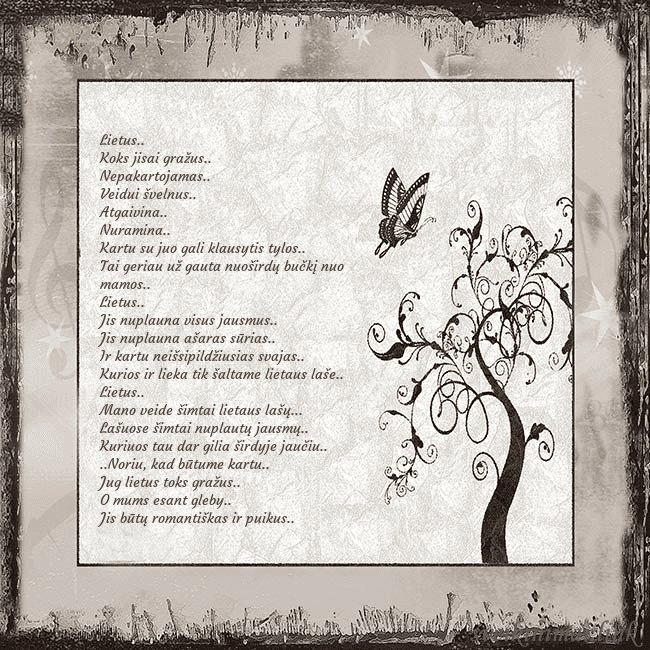 Lietus..
Koks jisai gražus..
Nepakartojamas..
Veidui švelnus..
Atgaivina..
Nuramina..
Kartu su juo gali klausytis tylos..
Tai geriau už gauta nuoširdų bučkį nuo
mamos..
Lietus..
Jis nuplauna visus jausmus..
Jis nuplauna ašaras sūrias..
Ir kartu neišsipildžiusias svajas..
Kurios ir lieka tik šaltame lietaus laše..
Lietus..
Mano veide šimtai lietaus lašų...
Lašuose šimtai nuplautų jausmų..
Kuriuos tau dar gilia širdyje jaučiu..
..Noriu, kad būtume kartu..
Jug lietus toks gražus..
O mums esant gleby..
Jis būtų romantiškas ir puikus..